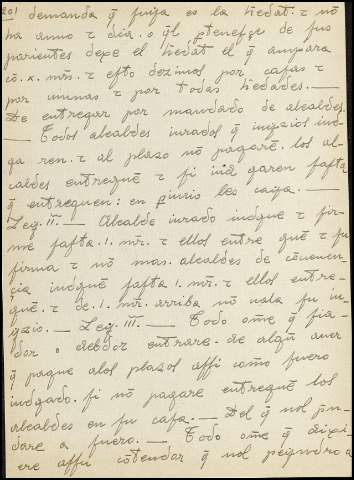 201 demanda q̃ fuya es la h̃edat. τ nõ
ha anno τ dia. o q̃l ꝑtenesçe de sus
parientes dexe el h̃edat el q̃ ampara
cõ .x. mr̃s. τ esto dezimos por casas τ
por uinnas τ por todas h̃edades. —
De entregar por mandado de alcaldes.
— Todos alcaldes iurados q̃ iuyzios iud-
ga ren. τ al plazo nõ pagarẽ. los al-
caldes entreguẽ τ si garen fasta
q̃ entreguen: en su casa. —
Ley. II. — Alcalde iurado iudgue τ fir-
me fasta .I. mr̃. τ ellos entre guẽ τ su
firma τ nõ mas. alcaldes de cõuenen-
çia iudguẽ fasta .I. mr̃. τ ellos entre-
guẽ. τ de .I. mr̃. arriba nõ uala su iu-
yzio. — Ley. III. — Todo om̃e q̃ fia-
dor o debdor entrare de algũ auer
q̃ pague alos plazos assi como fuero
iudgado. si nõ pagare entreguẽ los
alcaldes en su casa. — Del q̃ nol pin-
dare a fuero. — Todo om̃e q̃ dixi-
ere assu cõtendor q̃ nol peyndro a